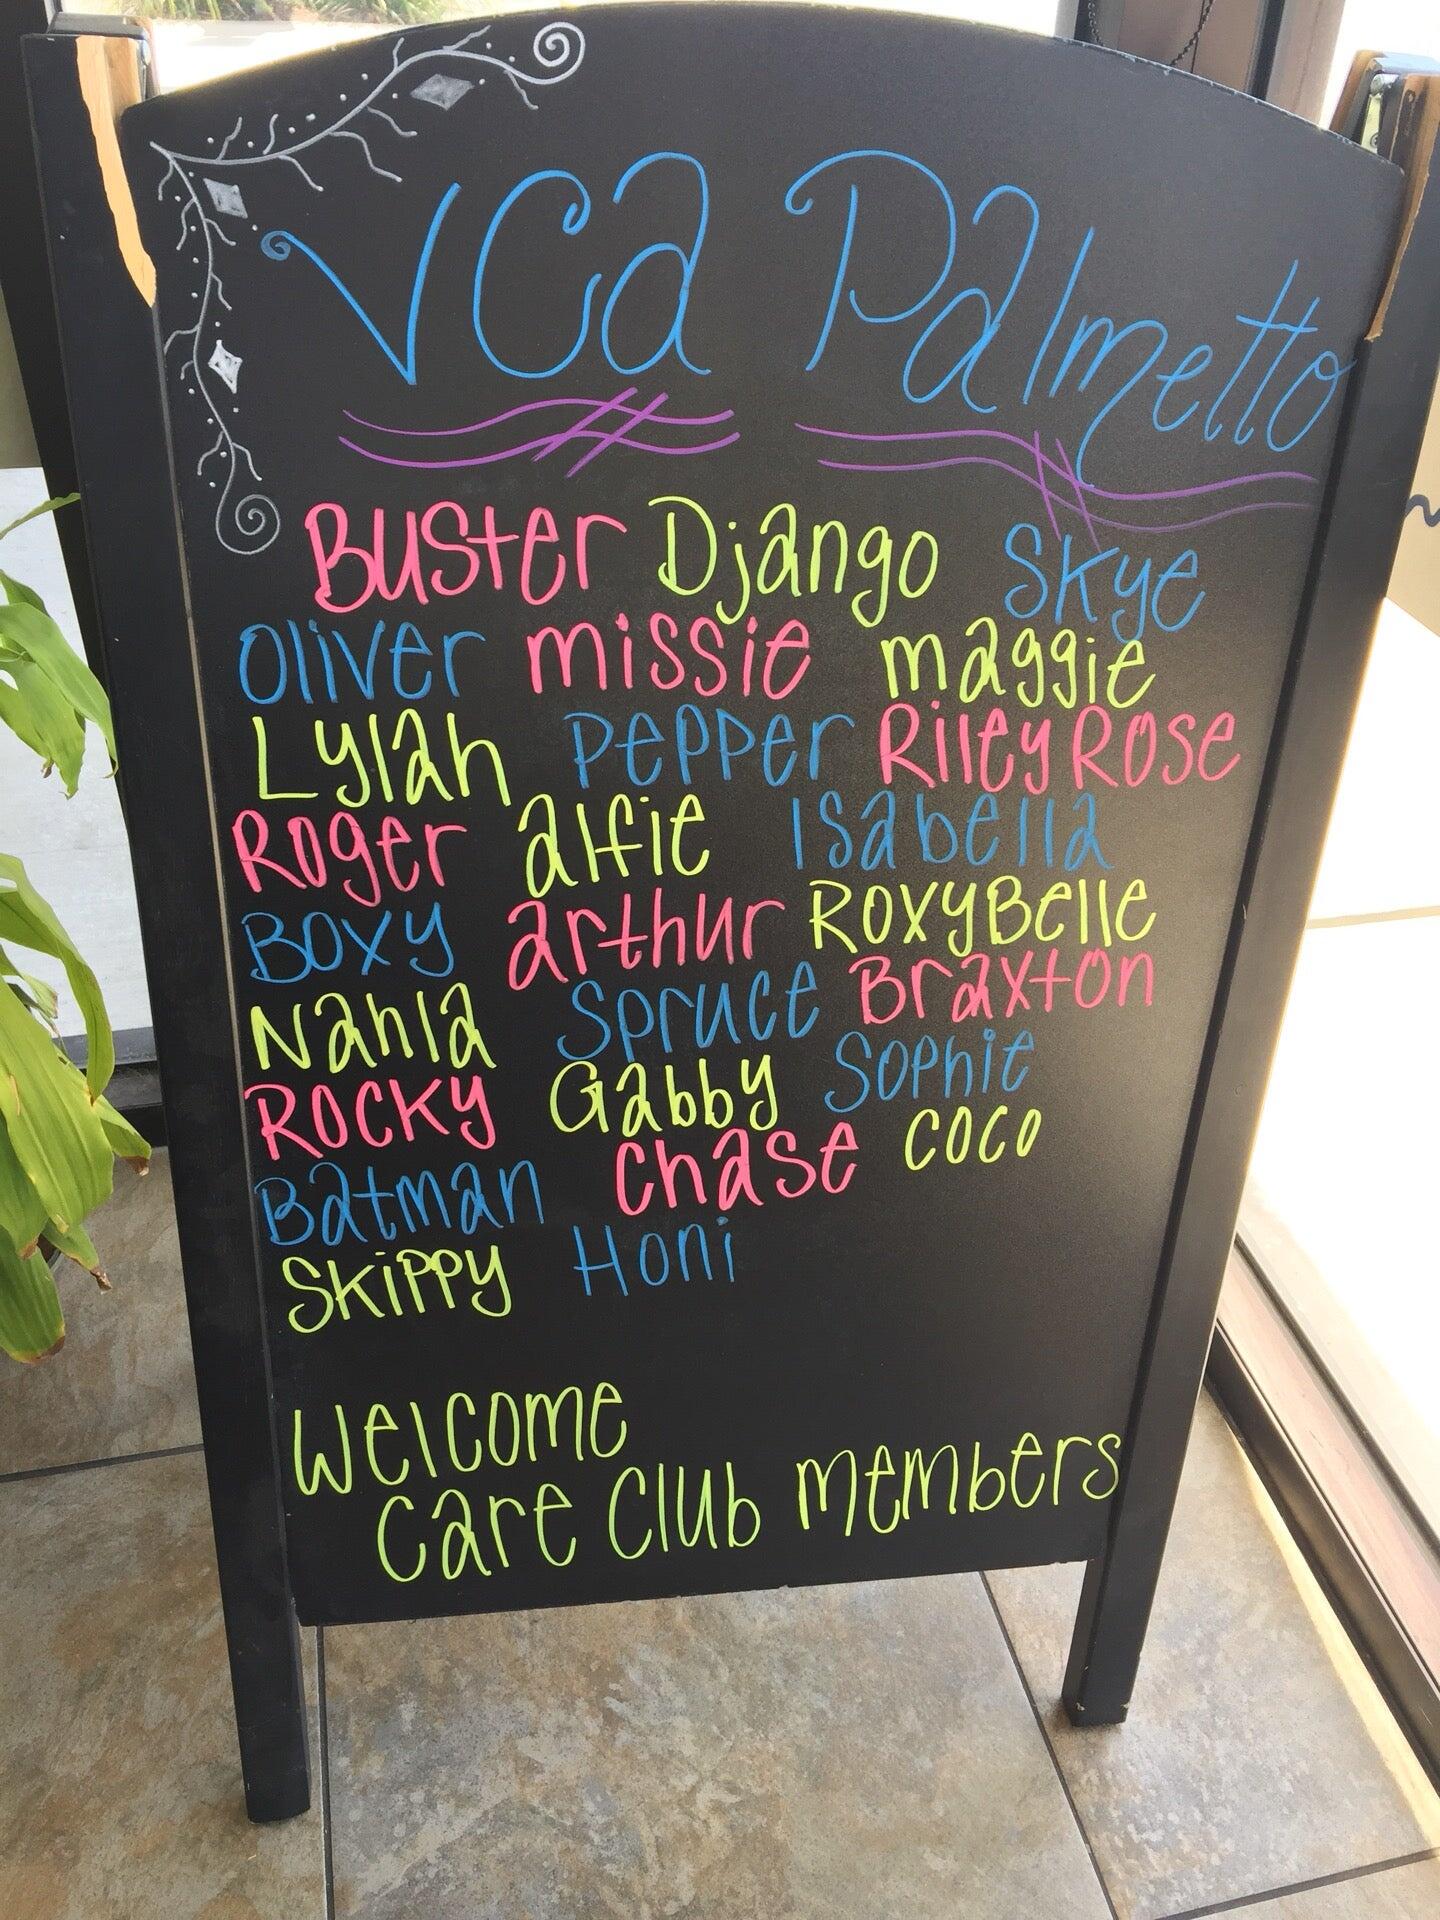 VCa Palmetto
Buster Django Skye
Oliver missie maggie
Lylah Pepper Riley Rose
Roger alfie Isabella
Boxy arthur RoxyBelle
Nahla Spruce Braxton
Rocky Gabby Sophie
Batman Chase Coco
Skippy Honi
Welcome
Care Club members